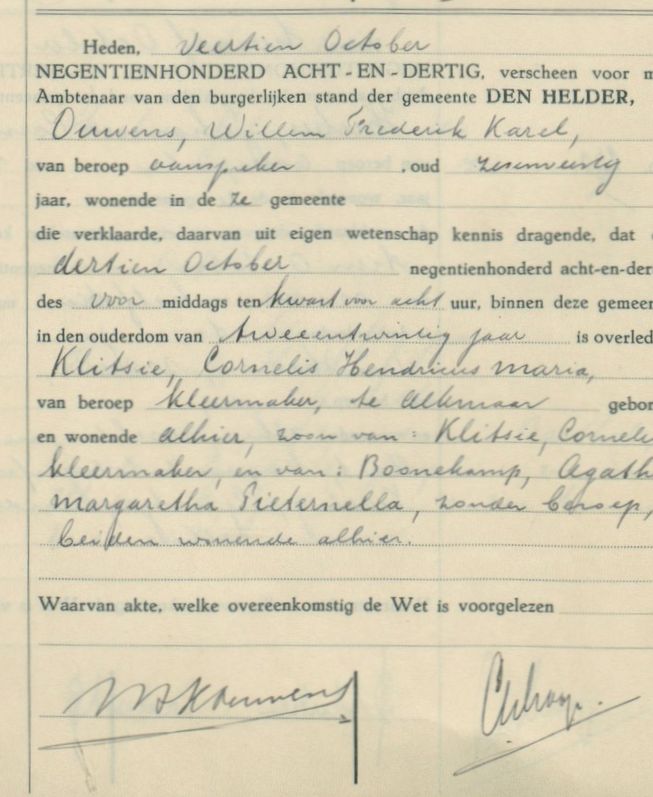 Heden, Veertien October
NEGENTIENHONDERD ACHT-EN-DERTIG, verscheen voor m
Ambtenaar van den burgerlijken stand der gemeente DEN HELDER,
Ouwens, Willem Frederik Karel,
van beroep aanspreker, oud zesenveertig
jaar, wonende in de ze gemeente
die verklaarde, daarvan uit eigen wetenschap kennis dragende, dat
dertien October negentienhonderd acht-en-der
des voor middags ten kwart voor acht uur, binnen deze gemeen
in den ouderdom van tweeentwintig jaar is overled
Klitsie, Cornelis Hendricus Maria,
van beroep kleermaker, te Alkmaar gebor
en wonende alhier, zoon van: Klitsie, Corneli
kleermaker, en van: Boonekamp, Agath
Margaretha Pieternella, zonder beroep,
beiden wonende alhier.
Waarvan akte, welke overeenkomstig de Wet is voorgelezen
WFKOuwens